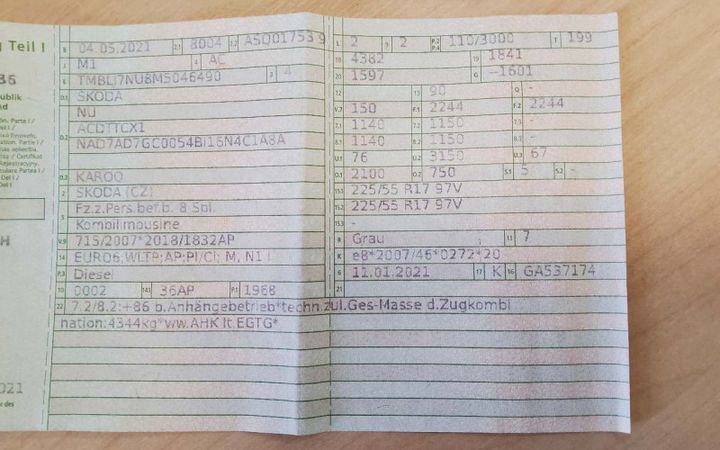 Teil I
B 04.05.2021 2.1 8004 2.2 A5Q01753 9
J M1 4 AC
E TMBLJ7NU8M5046490 3 4
D.1 SKODA
NU
D.2 ACDTTCX1
NAD7AD7GC0054BI16N4C1A8A
D.3 KAROQ
2 SKODA (CZ)
5 Fz.z.Pers.bef.b. 8 Spl.
Kombilimousine
V.9 715/2007*2018/1832AP
14 EURO6;WLTP;AP;PI/CI; M, N1 I
P.3 Diesel
10 0002 14.1 36AP P.1 1968
L 2 9 2 P.2 P.4 110/3000 T 199
18 4382 19 1841
20 1597 G --1601
12 13 90 Q -
V.7 150 F.1 2244 F.2 2244
7.1 1140 7.2 1150 7.3 -
8.1 1140 8.2 1150 8.3 -
U.1 76 U.2 3150 U.3 67
O.1 2100 O.2 750 S.1 5 S.2 -
15.1 225/55 R17 97V
15.2 225/55 R17 97V
15.3 -
R Grau 11 7
K e8*2007/46*0272*20
6 11.01.2021 17 K 16 GA537174
21
22 7.2/8.2:+86 b.Anhängebetrieb*techn.zul.Ges-Masse d.Zugkombi
nation:4344kg*ww.AHK lt.EGTG*